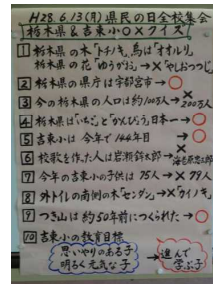 H28.6/13(月)県民の日全校集会
栃木県&吉東小○×クイズ
1 栃木県の木「トチノキ」鳥は「オオルリ」
栃木県の花「ゆうがお」→×「やしおつつじ」
2 栃木県の県庁は宇都宮市→○
3 今の栃木県の人口は約100万人→× 200万人
4 栃木県は「いちご」と「かんぴょう」日本一→○
5 吉東小は今年で144年目→○
6 校歌を作った人は岩瀬鉾太郎→×
7 今年の吉東小の子供は75人→×79人
8 外トイレの南側の木「センダン」→×「カイノキ」
9 つき山は約50年前につくられた→○
10 吉東小の教育目標
思いやりのある子
明るく元気な子
→進んで
学ぶ子